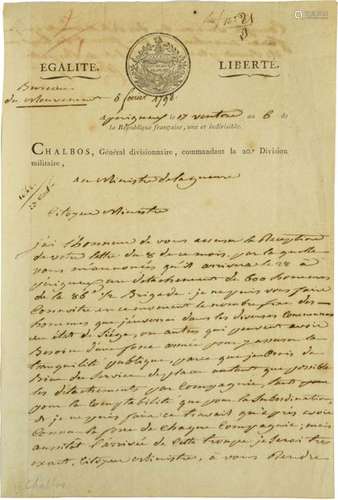 EGALITE. LIBERTE.
Bureau
du Mouvement
6 1798
a perigueux le 17 ventose an 6 de
la République française, une et indivisible.
CHALBOS, Général divisionnaire, commandant la 20.e Division
militaire,
au Ministre de la guerre
Citoyen Ministre
j'ai l'honneur de vous assurer la Reception
de votre lettre du 8 de ce mois, par laquelle
vous m'annoncés qu'il arrivera le 28 a
perigueux un detachement de 600 hommes
de la 86e 1/2 Brigade, je ne puis vous faire
Connoitre en ce moment le nombre fixe des
hommes que j'enverrai dans les diverses Communes
en état de Siège, ou autres qui peuvent avoir
Besoin d'une force armée pour y assurer la
tranquilité publique, parce que je dois du
Bien du Service de placer autant que possible
les détachements par Compagnie, tant pour
pour la Comptabilité que pour la Subordination,
& je ne puis faire ce travail qu'après avoir
Connu la force de Chaque Compagnie; mais
aussitot l'arrivée de Cette troupe je serai très
exact, Citoyen Ministre, a vous Rendre
Chalbos